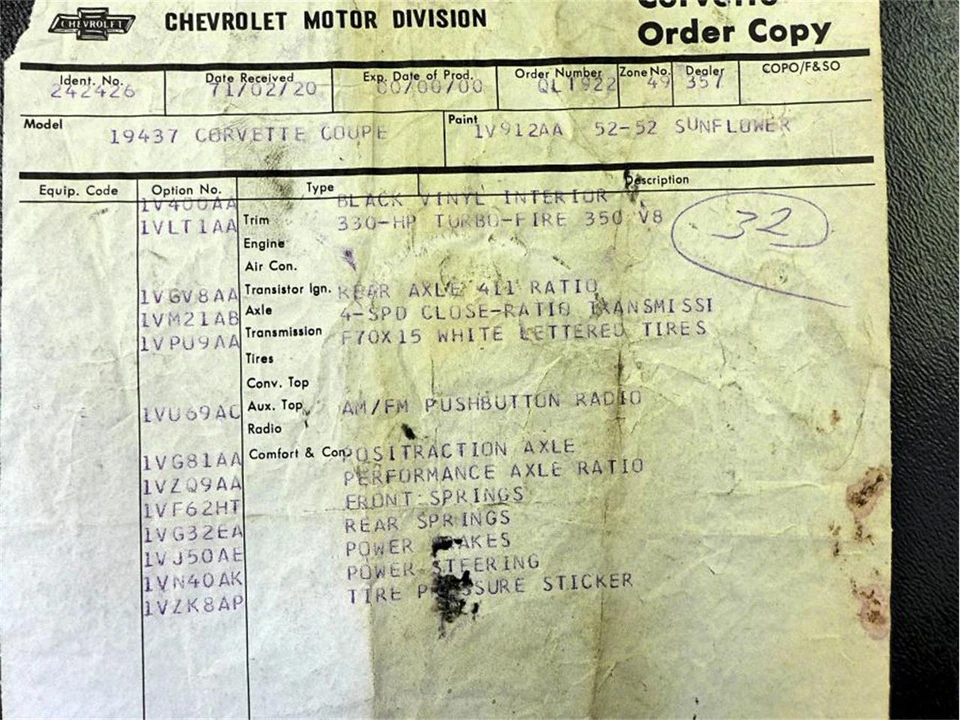 CHEVROLET CHEVROLET MOTOR DIVISION
Corvette
Order Copy
Ident. No. Date Received Exp. Date of Prod. Order Number Zone No. Dealer COPO/F&SO
242426 71/02/20 00/00/00 QLT922 49 357
Model 19437 CORVETTE COUPE Paint 1V912AA 52-52 SUNFLOWER
Equip. Code Option No. Type Description
1V400AA BLACK VINYL INTERIOR
1VLT1AA Trim 330-HP TURBO-FIRE 350 V8
Engine
32
Air Con.
1VGV8AA Transistor Ign. REAR AXLE 411 RATIO
1VM21AB Axle 4-SPD CLOSE-RATIO TRANSMISSI
1VPU9AA Transmission F70X15 WHITE LETTERED TIRES
Tires
Conv. Top
1VU69AC Aux. Top AM/FM PUSHBUTTON RADIO
Radio
1VG81AA Comfort & Con. POSITRACTION AXLE
1VZQ9AA PERFORMANCE AXLE RATIO
1VF62HT FRONT SPRINGS
1VG32EA REAR SPRINGS
1VJ50AE POWER BRAKES
1VN40AK POWER STEERING
1VZK8AP TIRE PRESSURE STICKER